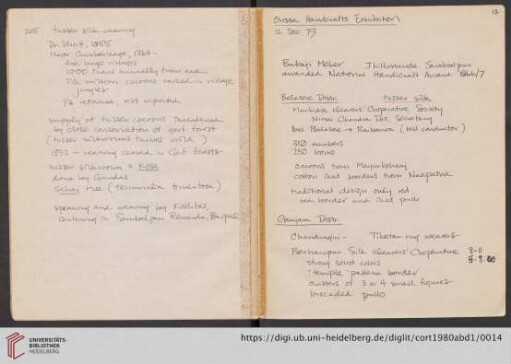 205. tusser silk weaving
Dr. Short, 1855
Major Cumberledge, 1864
five large villages
1000 thans annually from each
7 1/2 million cocoons raised in village
jungles
1/2 retained, rest exported
supply of tusser cocoons threatened
by close conservation of govt. forest
(tusser silkworms thrives wild)
1872 - rearing ceased in Govt forests
tusser silkworm = Kosa
done by Gandas
tree (terminalia tomentosa)
spinning and weaving by Koshtas,
centering in Sambalpur, Remenda, Barpali
13
Orissa Handicrafts Exhibition
12 Dec 79
Meher Sambalpur
awarded National Handicraft Award
Balasore Distr. tusser silk
Weavers' Cooperative Society
Chandra Das, Secretary
bus Balasore → (tell conductor)
350 members
250 looms
cocoons from Mayurbhanj
cotton and borders from Nuapatna
traditional design only red
red border and ikat pallo
Ganjam Distr.
Chandragiri - Tibetan rug weavers
Berhampur Silk Weavers' Cooperative 8-11
strong solid colors
'temple' pattern border
clusters of 3 or 4 small figures
brocaded pallo
UNIVERSITÄTS-
BIBLIOTHEK
HEIDELBERG
https://digi.ub.uni-heidelberg.de/diglit/cort1980abd1/0014